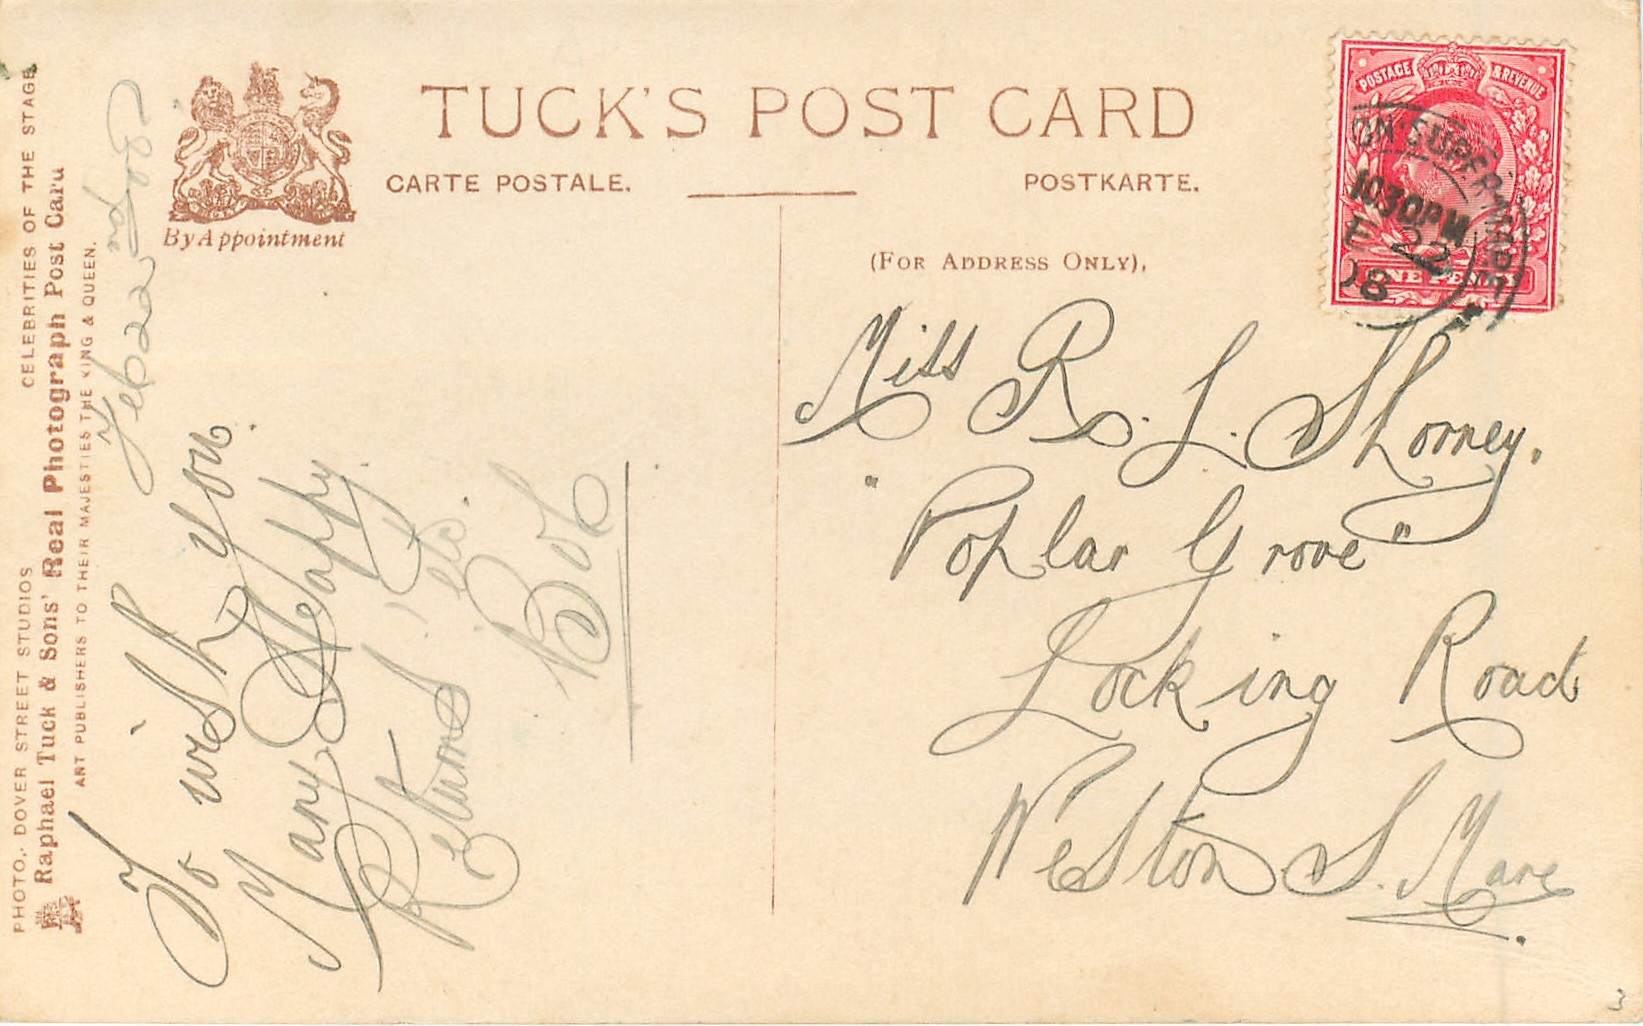 PHOTO. DOVER STREET STUDIOS CELEBRITIES OF THE STAGE
Raphael Tuck & Sons' Real Photograph Post Card
ART PUBLISHERS TO THEIR MAJESTIES THE KING & QUEEN.
By Appointment
TUCK'S POST CARD
CARTE POSTALE.
POSTKARTE.
(FOR ADDRESS ONLY).
POSTAGE & REVENUE
ONE PENNY
ON-SUPER-MARE
10 30 PM
F 22
08
Feb 22nd 
To wish you
Many Happy
Returns, etc.
Bob
Miss R. L. Shorney.
"Poplar Grove"
Locking Road
Weston S. Mare.
3